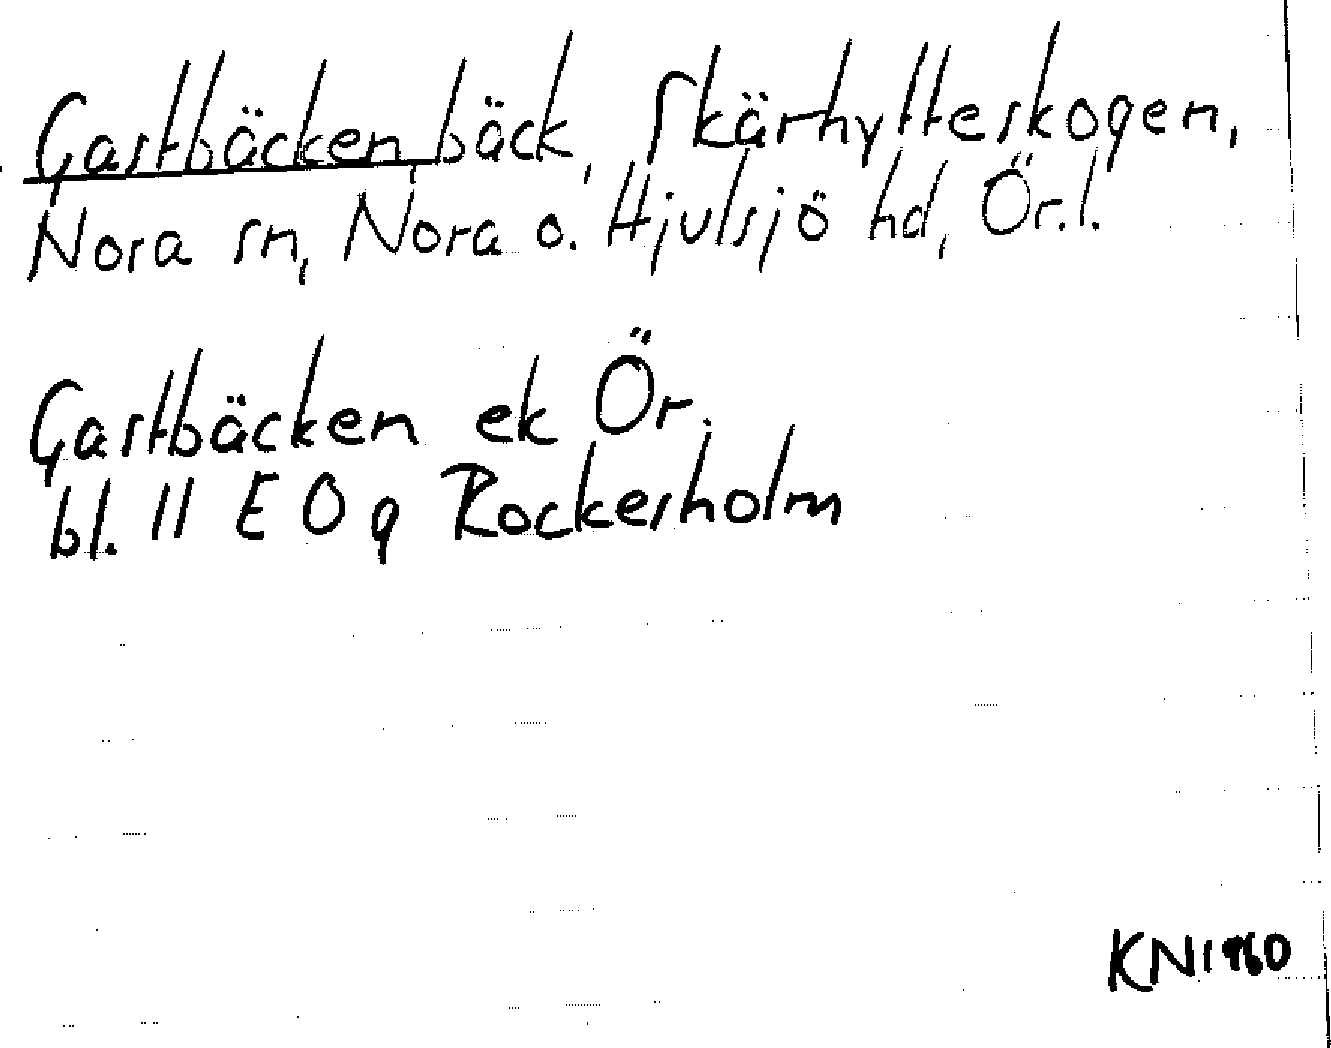 Gastbäcken, bäck, Skärhytteskogen,
Nora sn, Nora o. Hjulsjö hd, Ör.l.
Gastbäcken ek Ör.
bl. 11 E 0 g Rockesholm
KN1960